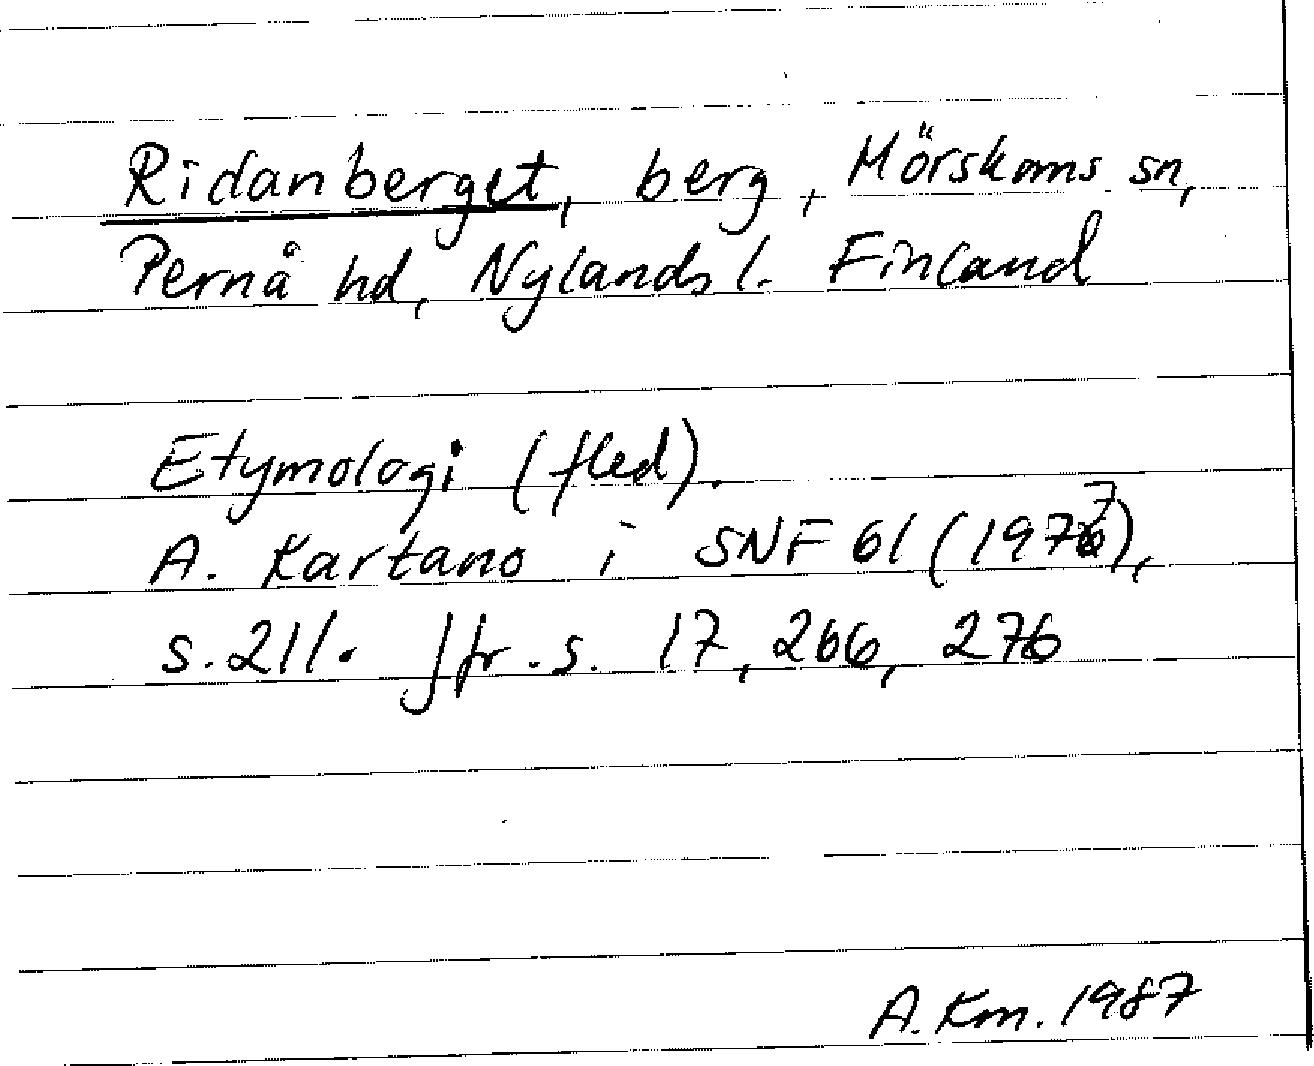 Ridanberget, berg, Mörskoms sn,
Pernå hd, Nylands l. Finland
Etymologi (fled).
A. Kartano i SNF 61 (1977),
s. 211. Jfr. s. 17, 266, 276
A. Km. 1987